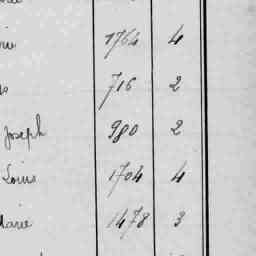 1764 4
716 2
Joseph 980 2
Louis 1704 4
Marie 1478 3